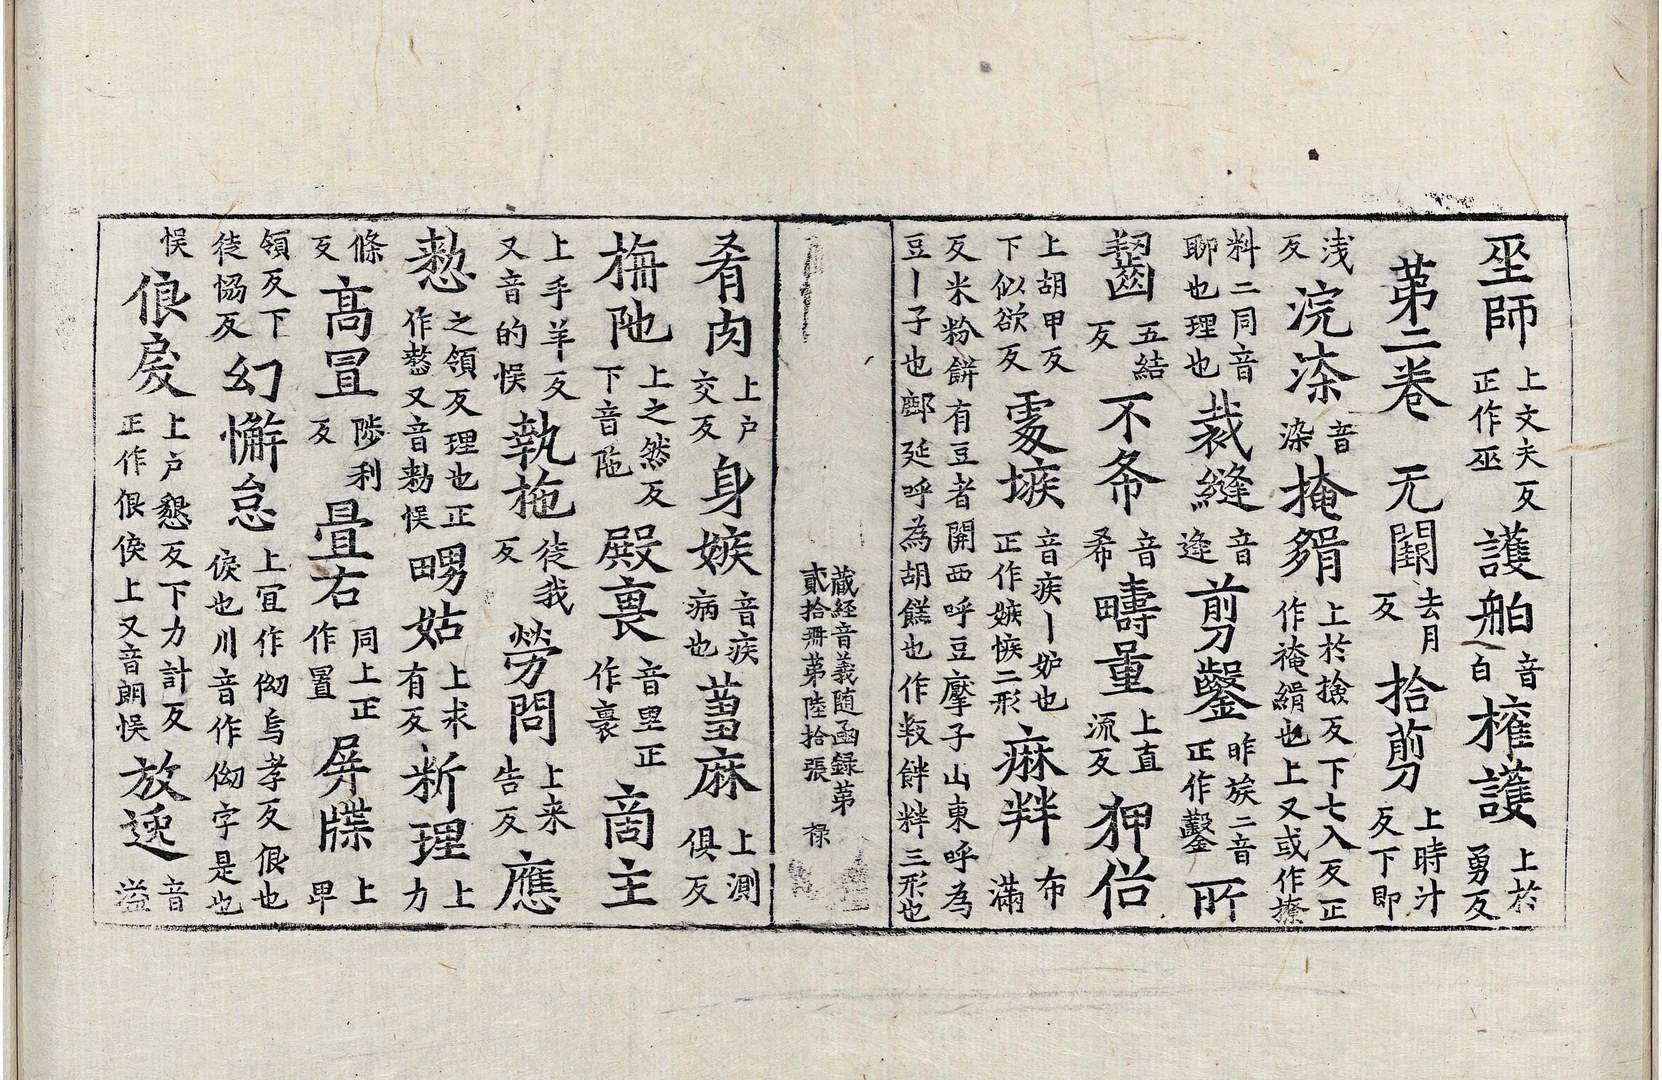 坙師上文夫反正作巫護舶音白㩲護上於勇反
苐二卷 无𨷲去月反拾剪上時汁反下即
浅反浣𣑱音染掩𦃄上於撿反下七入反正作裺緝也上又或作撩
料二同音聊也理也裁縫音逢剪鑿昨族二音正作鑿所
齧五結反不希音希疇量上直流反狎俗
上胡甲反下似欲反䨱嫉音疾丨妒也正作嫉愱二形麻䉽布滿
反米粉餅有豆者開西呼豆摩子山東呼為豆丨子也鄜延呼為胡䭚也作粄䬳䉽三形也
藏經音義随函録第貳拾册第陸拾張 禄
肴肉上户交反身嫉音疾病也葘麻上測俱反
栴陁上之然反下音陁殿裏音里正作裏啇主
上手羊反又音的悮執拖徒我反勞問上来告反應
慗之領反理也正作整又音勑悮甥姑上求有反新理上力
條反髙冝陟利反畳右同上正作置屏牒上畢
領反下徒恊反幻懈怠上冝作㑃烏孝反佷也㑦也川音作㑃字是也
悮佷戾上户懇反下力計反正作佷㑦上又音朗悮放逸音溢